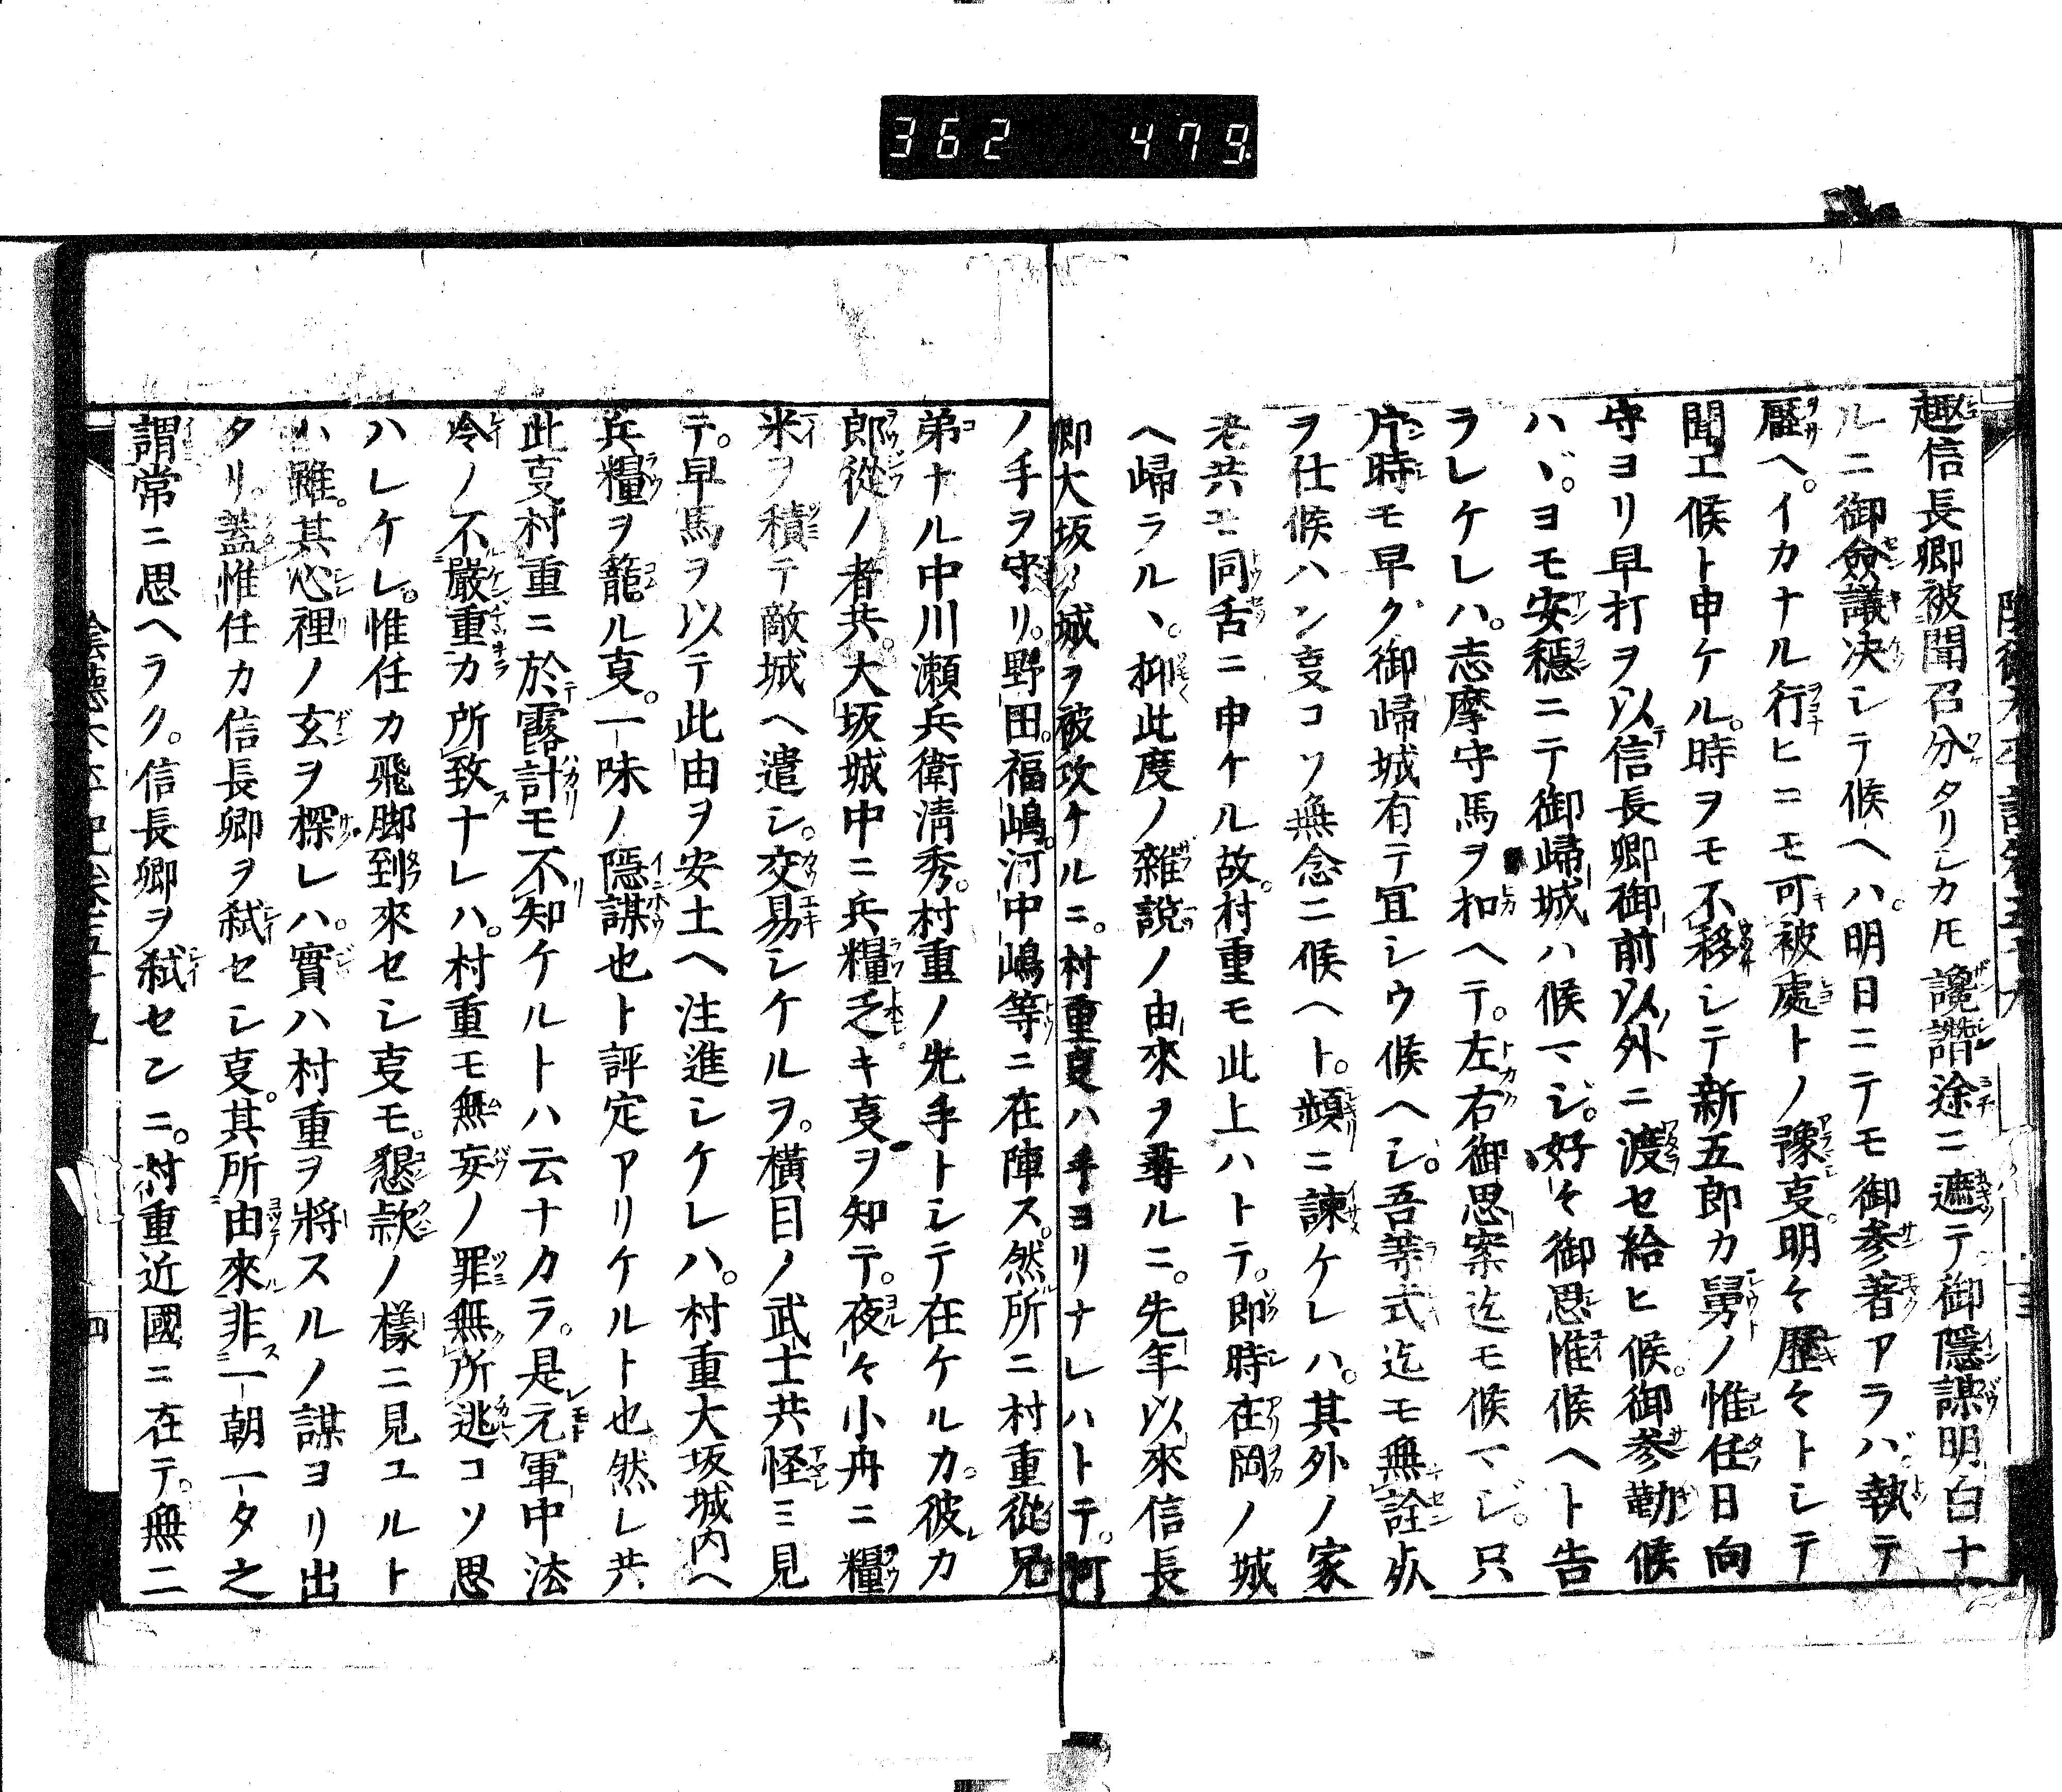 362 479.
趣信長卿被聞召分タリシカモ讒譖途ニ遮テ御隱謀明白ナ
ルニ御僉議決シテ候ヘハ。明日ニテモ御参著アラハ゛執テ
壓ヘ。イカナル行ヒニモ可被處トノ豫㕝。明々歷々トシテ
聞エ候ト申ケル。時ヲモ不移シテ新五郎カ舅ノ惟任日向
守ヨリ早打ヲ以信長卿御前以外ニ渡セ給ヒ候。御参勤候
ハヽ゛。ヨモ安穩ニテ御歸城ハ候マシ゛。好々御思惟候ヘト告
ラレケレハ。志摩守馬ヲ扣ヘテ。左右御思案迄モ候マシ゛。只
片時モ早ク御歸城有テ冝シウ候ヘシ。吾等式迄モ無詮㱐
ヲ仕候ハン㕝コソ無念ニ候ヘト。頻ニ諫ケレハ。其外ノ家
老共モ同舌ニ申ケル故。村重モ此上ハトテ。即時在岡ノ城
ヘ歸ラル、。抑此度ノ雜說ノ由來ヲ尋ルニ。先年以來信長
卿大坂ノ城ヲ被攻ケルニ。村重㕝ハ手ヨリナレハトテ。河
ノ手ヲ守リ。野田。福嶋。河中嶋等ニ在陣ス。然所ニ村重從兄
弟ナル中川瀬兵衛淸秀。村重ノ先手トシテ在ケルカ。彼カ
郎從ノ者共。大坂城中ニ兵糧乏キ㕝ヲ知テ。夜々小舟ニ糧
米ヲ積テ敵城ヘ遣シ。交易シケルヲ。橫目ノ武士共怪ミ見
テ。早馬ヲ以テ此由ヲ安土ヘ注進シケレハ。村重大坂城内ヘ
兵糧ヲ籠ル㕝。一味ノ隱謀也ト評定アリケルト也然レ共
此㕝村重ニ於露計モ不知ケルトハ云ナカラ。是元軍中法
令ノ不嚴重カ所致ナレハ。村重モ無妄ノ罪無所逃コソ思
ハレケレ。惟任カ飛脚到來セシ㕝モ。懇款ノ樣ニ見ユルト
ハ雖。其心裡ノ玄ヲ探レハ。實ハ村重ヲ將スルノ謀ヨリ出
タリ。蓋惟任カ信長卿ヲ弑セシ㕝。其所由來非一朝一タ之
謂常ニ思ヘラク。信長卿ヲ弑センニ。村重近國ニ在テ。無二